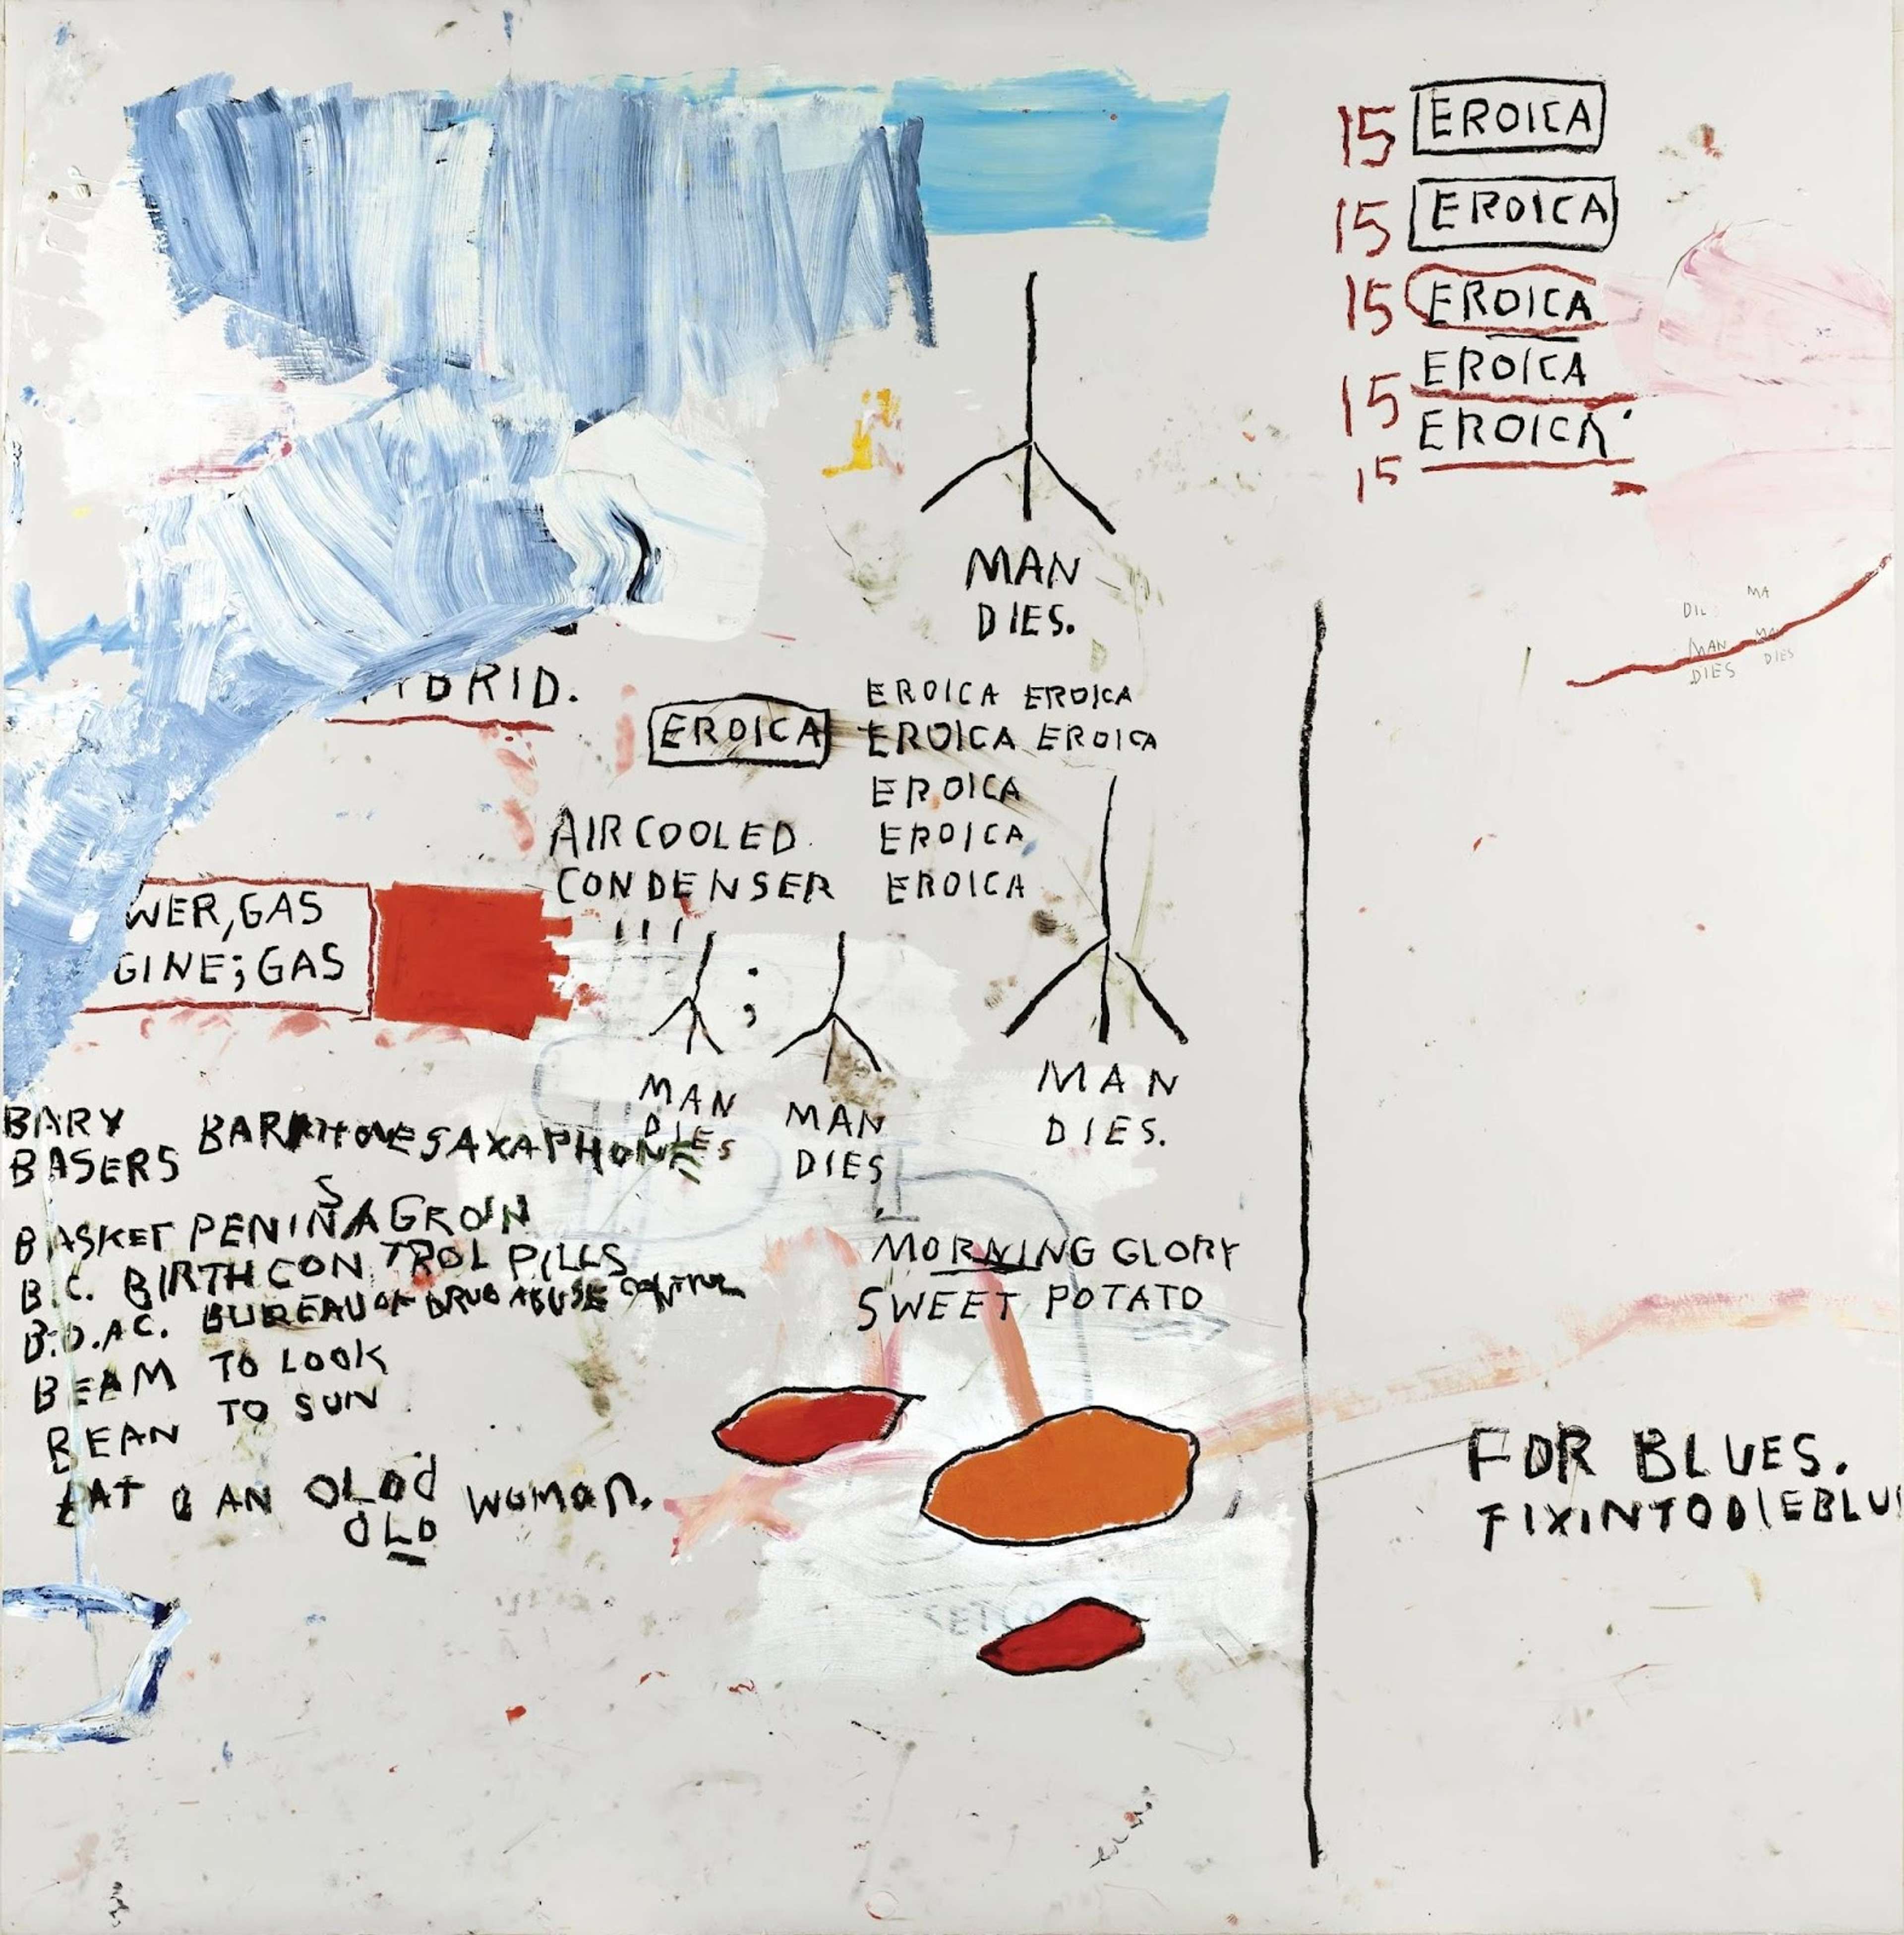 15 EROICA
15 EROICA
15 EROICA
15 EROICA
15 EROICA
MAN
DIES.
MA
MAN
DIES
DIES
YBRID.
EROICA
EROICA EROICA
EROICA EROICA
EROICA
EROICA
EROICA
AIRCOOLED
CONDENSER
WER, GAS
GINE; GAS
;
MAN
DIES
MAN
DIES
MAN
DIES.
BARY
BASERS
BARITONE SAXAPHONE
S
BASKET PENIN A GROIN
B.C. BIRTH CONTROL PILLS
B.D.A.C. BUREAU OF DRUG ABUSE CONTROL
BEAM TO LOOK
BEAN TO SUN
EAT AN OLD WOMAN.
OLD
MORNING GLORY
SWEET POTATO
FOR BLUES.
FIXINTODIEBLU